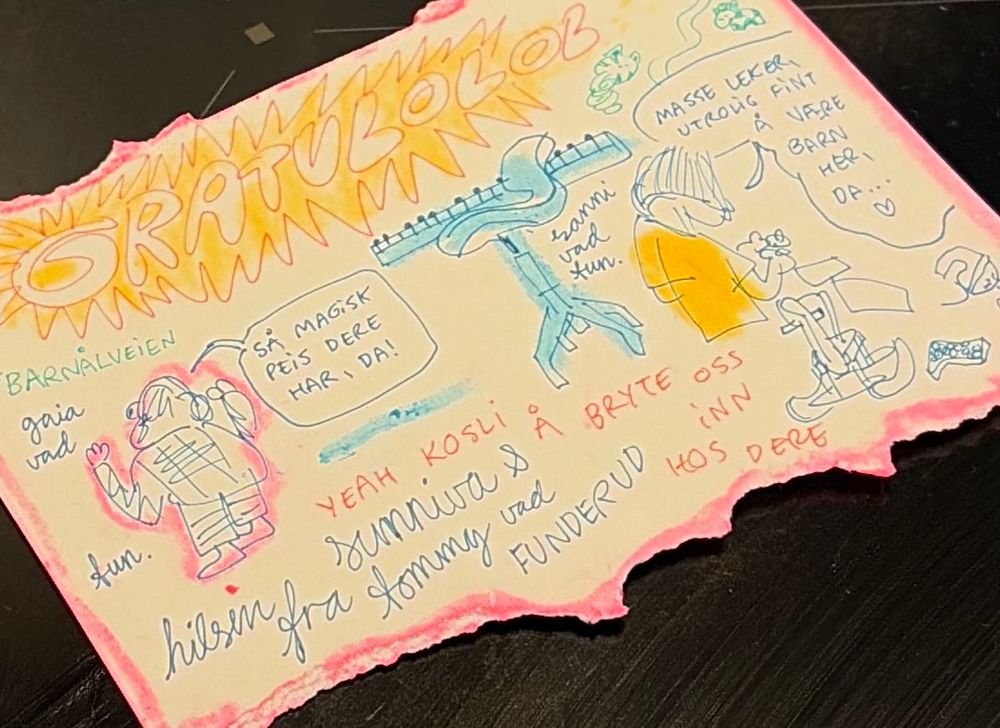 GRATULOLOL
MASSE LEKER,
UTROLIG FINT
Å VÆRE
BARN
HER,
DA...
sanni
vad
tun.
BARNÅLVEIEN
SÅ MAGISK
PEIS DERE
HAR, DA!
gaia
vad
tun.
YEAH KOSLI Å BRYTE OSS
INN
HOS DERE
hilsen fra sunniva &
tommy vad
FUNDERUD